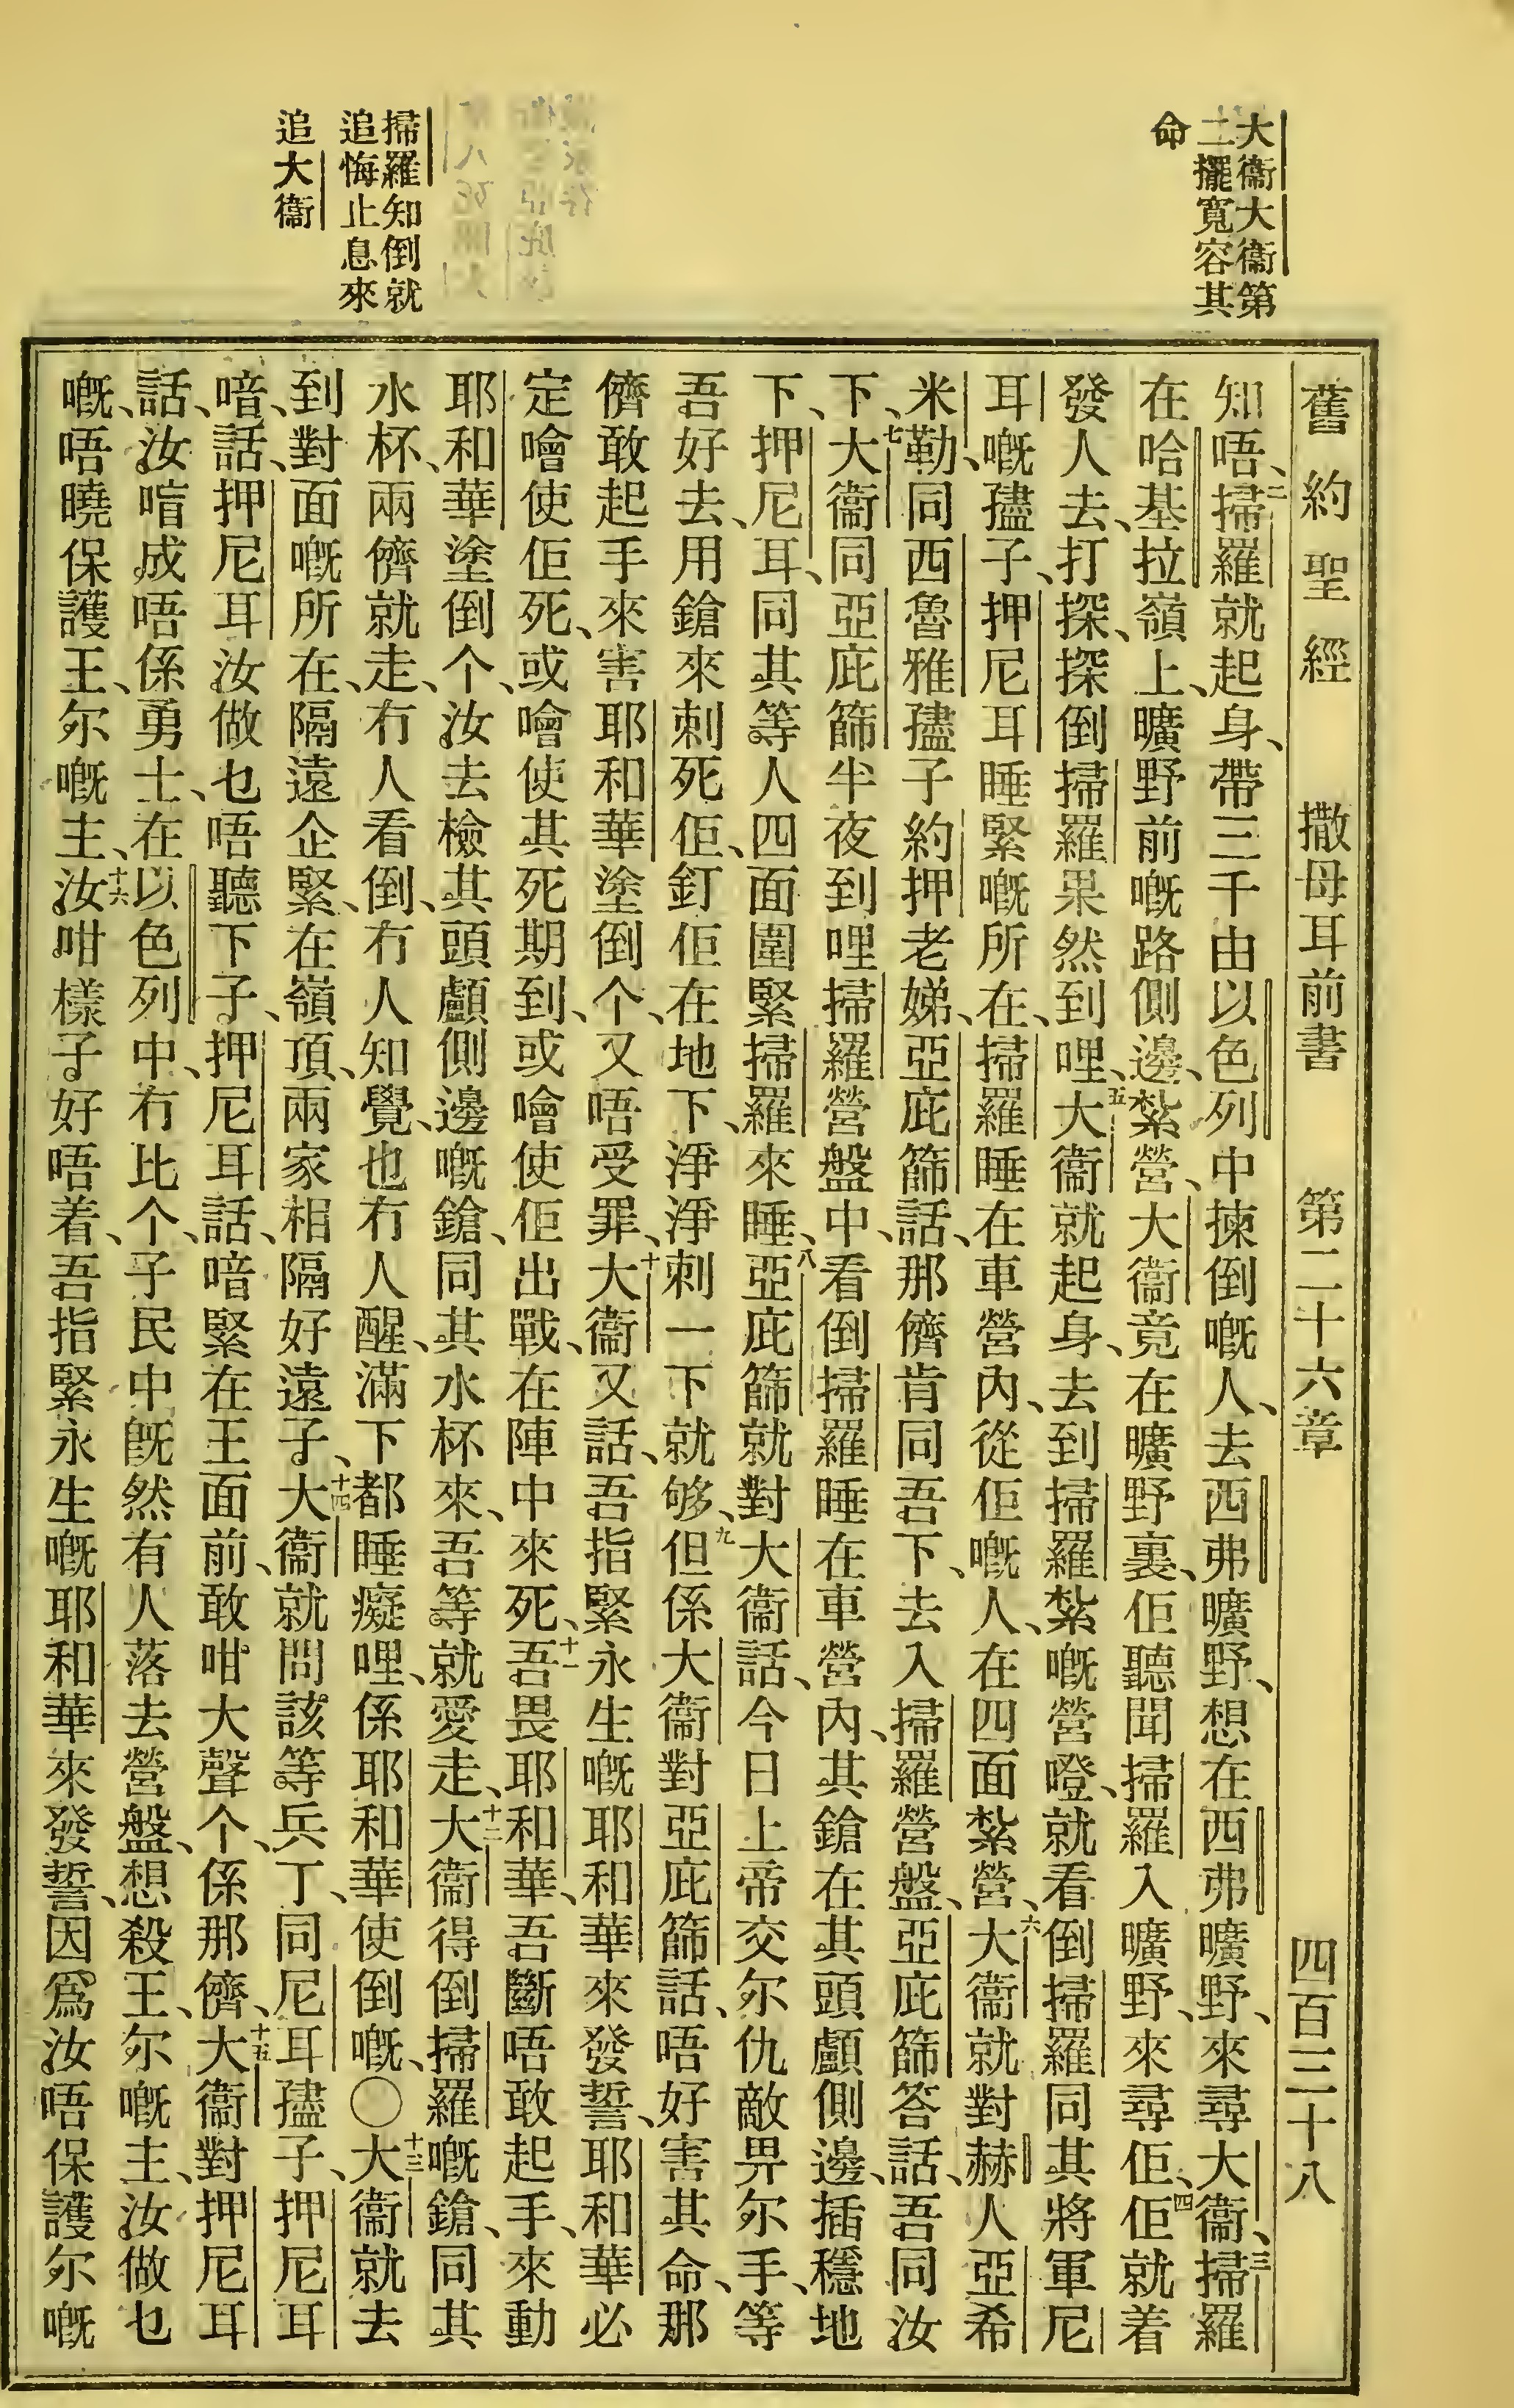 大衞大衞第
二擺寬容其
命
掃羅知倒就
追悔止息來
追大衞
舊約聖經 撒母耳前書 第二十六章 四百三十八
知唔、二掃羅就起身、帶三千由以色列中揀倒嘅人、去西弗曠野、想在西弗曠野、來尋大衞、三掃羅
在哈基拉嶺上、曠野前嘅路側邊、紮營、大衞竟在曠野裏、佢聽聞掃羅入曠野、來尋佢、四佢就着
發人去、打探、探倒掃羅果然到哩、五大衞就起身、去到掃羅紮嘅營嶝、就看倒掃羅同其將軍尼
耳嘅孻子、押尼耳睡緊嘅所在、掃羅睡在車營內、從佢嘅人、在四面紮營、六大衞就對赫人亞希
米勒、同西魯雅孻子約押老娣、亞庇篩話、那儕肯同吾下、去入掃羅營盤、亞庇篩答話、吾同汝
下、七大衞同亞庇篩半夜到哩掃羅營盤中、看倒掃羅睡在車營內、其鎗在其頭顱側邊、插穩地
下、押尼耳、同其等人四面圍緊掃羅來睡、八亞庇篩就對大衞話、今日上帝交尔仇敵畀尔手、等
吾好去、用鎗來刺死佢、釘佢在地下、淨淨刺一下就够、九但係大衞對亞庇篩話、唔好害其命、那
儕敢起手來害耶和華塗倒个、又唔受罪、十大衞又話、吾指緊永生嘅耶和華來發誓、耶和華必
定噲使佢死、或噲使其死期到、或噲使佢出戰、在陣中來死、十一吾畏耶和華、吾斷唔敢起手、來動
耶和華塗倒个、汝去檢其頭顱側邊嘅鎗、同其水杯來、吾等就愛走、十二大衞得倒掃羅嘅鎗、同其
水杯、兩儕就走、冇人看倒、冇人知覺、也冇人醒、滿下都睡癡哩、係耶和華使倒嘅、〇十三大衞就去
到對面嘅所在、隔遠企緊、在嶺頂、兩家相隔好遠子、十四大衞就問該等兵丁、同尼耳孻子、押尼耳
喑、話、押尼耳汝做乜唔聽下子、押尼耳話、喑緊在王面前、敢咁大聲个、係那儕、十五大衞對押尼耳
話、汝喑成唔係勇士、在以色列中、冇比个、子民中旣然有人落去營盤、想殺王、尔嘅主、汝做乜
嘅、唔曉保護王、尔嘅主、十六汝咁樣子好唔着、吾指緊永生嘅耶和華來發誓、因爲汝唔保護尔嘅